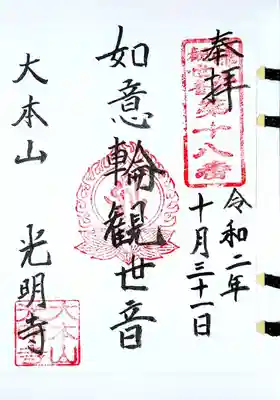 奉拝
第十八番
令和二年
十月三十一日
如意輪観世音
大本山 光明寺
大本山